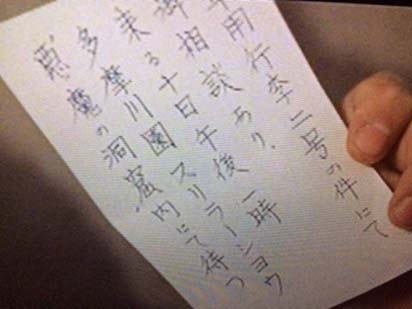 用行李二号の件にて
御相談あり、
来る十日午後一時
多摩川園スリラーショウ
悪魔の洞窟内にて待つ